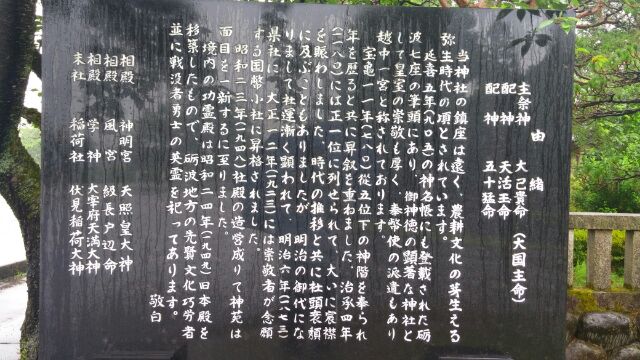 由緒
主祭神 大己貴命(大国主命)
配神 天活玉命
配神 五十猛命
当神社の鎮座は遠く、農耕文化の芽生える
弥生時代の頃とされています。
延喜五年(九〇五)の神名帳にも登載された砺
波七座の筆頭にあり、御神徳の顕著な神社と
して皇室の崇敬も厚く、奉幣使の派遣もあり
越中一宮と称されております。
宝亀一一年(七八〇)従五位下の神階を奉られ
年を歴ると共に昇叙を重ねました。治承四年
(一一八〇)には正一位に列せられて、大いに衰襟
を賑わしました。時代の推移と共に社頭衰頽
に及ぶこともありましたが、明治の御代にな
りまして社運漸く顕われて、明治六年(一八七三)
県社に、大正一二年(一九二三)には崇敬者が念願
する国幣小社に昇格されました。
昭和二三年(一九四八)社殿の造営成りて神苑は
面目を一新するに至りました。
境内の功霊殿は昭和二四年(一九四九)旧本殿を
移築したもので、砺波地方の先賢文化功労者
並に戦没勇士の英霊を祀ってあります。
敬白
相殿 神明宮 天照皇大神
相殿 風宮 級長戸辺命
相殿 学神 大宰府天満大神
末社 稲荷社 伏見稲荷大神